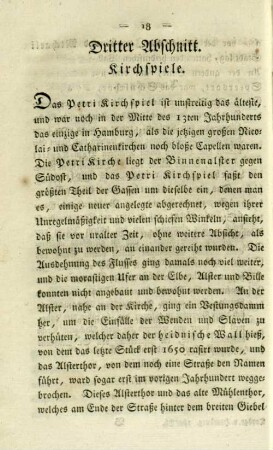 — 18 —
Dritter Abschnitt.
Kirchspiele.
Das Petri Kirchspiel ist unstreitig das älteste,
und war noch in der Mitte des 12ten Jahrhunderts
das einzige in Hamburg, als die jetzigen großen Nico-
lai- und Catharinenkirchen noch bloße Capellen waren.
Die Petri Kirche liegt der Binnenalster gegen
Südost, und das Petri Kirchspiel faßt den
größten Theil der Gassen um dieselbe ein, denen man
es, einige neuer angelegte abgerechnet, wegen ihrer
Unregelmäßigkeit und vielen schiefen Winkeln, ansieht,
daß sie vor uralter Zeit, ohne weitere Absicht, als
bewohnt zu werden, an einander gereiht wurden. Die
Ausdehnung des Flusses ging damals noch viel weiter,
und die morastigen Ufer an der Elbe, Alster und Bille
konnten nicht angebaut und bewohnt werden. An der
Alster, nahe an der Kirche, ging ein Vestungsdamm
her, um die Einfälle der Wenden und Slaven zu
verhüten, welcher daher der heidnische Wall hieß,
von dem das letzte Stück erst 1650 rasirt wurde, und
das Alsterthor, von dem noch eine Straße den Namen
führt, ward sogar erst im vorigen Jahrhundert wegge-
brochen. Dieses Alsterthor und das alte Mühlenthor,
welches am Ende der Straße hinter dem breiten Giebel